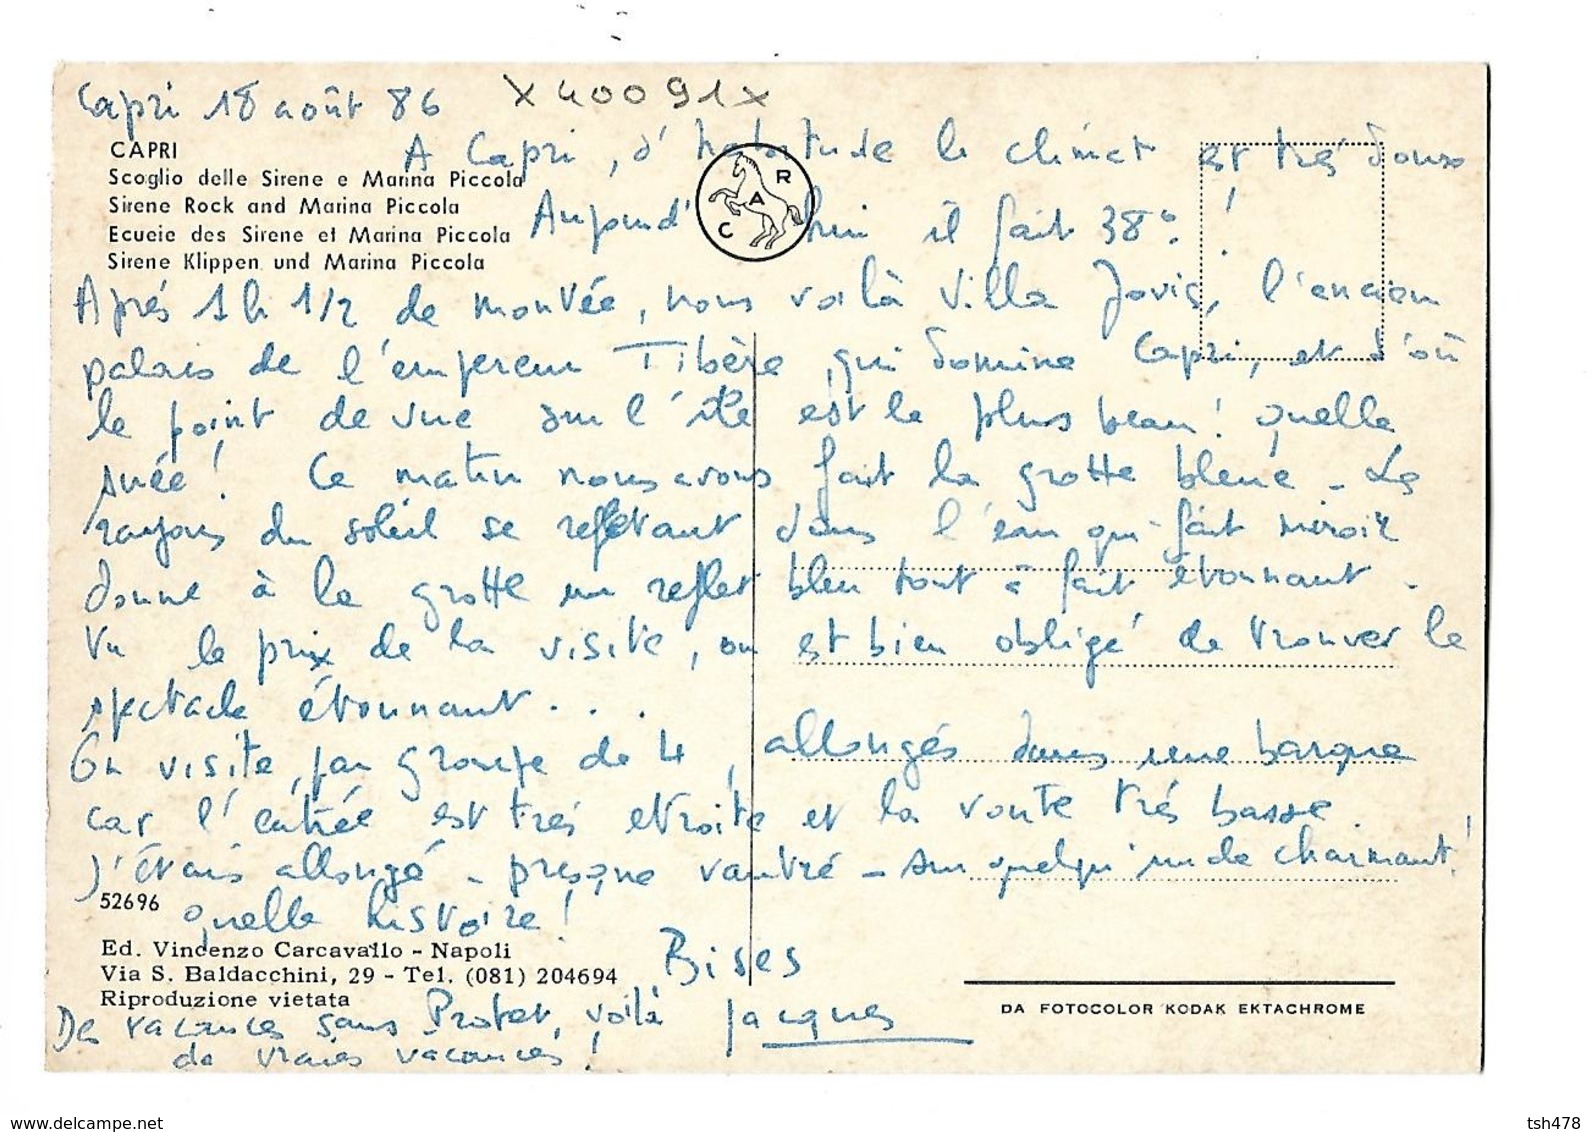 Capri 18 août 86
X40091X
CAPRI
Scoglio delle Sirene e Marina Piccola
Sirene Rock and Marina Piccola
Ecueie des Sirene et Marina Piccola
Sirene Klippen und Marina Piccola
C A R
A Capri, d'habitude le climat est très doux
Aujourd'hui il fait 38° !
Après 1h 1/2 de montée, nous voilà Villa Jovis, l'ancien
palais de l'empereur Tibère, qui domine Capri, et d'où
le point de vue sur l'île est le plus beau! Quelle
suée! Ce matin nous avons fait la grotte bleue - Les
rayons du soleil se reflétant dans l'eau qui fait miroir
donne à la grotte un reflet bleu tout à fait étonnant.
Vu le prix de la visite, on est bien obligé de trouver le
spectacle étonnant...
On visite par groupe de 4, allongés dans une barque
car l'entrée est très étroite et la voute très basse.
J'étais allongé - presque vautré - sur quelqu'un de charmant!
52696
quelle histoire!
Ed. Vincenzo Carcavallo - Napoli
Via S. Baldacchini, 29 - Tel. (081) 204694
Riproduzione vietata
Bises
Jacques
Des vacances sans Protet, voilà
de vraies vacances!
DA FOTOCOLOR KODAK EKTACHROME
www.delcampe.net
tsh478